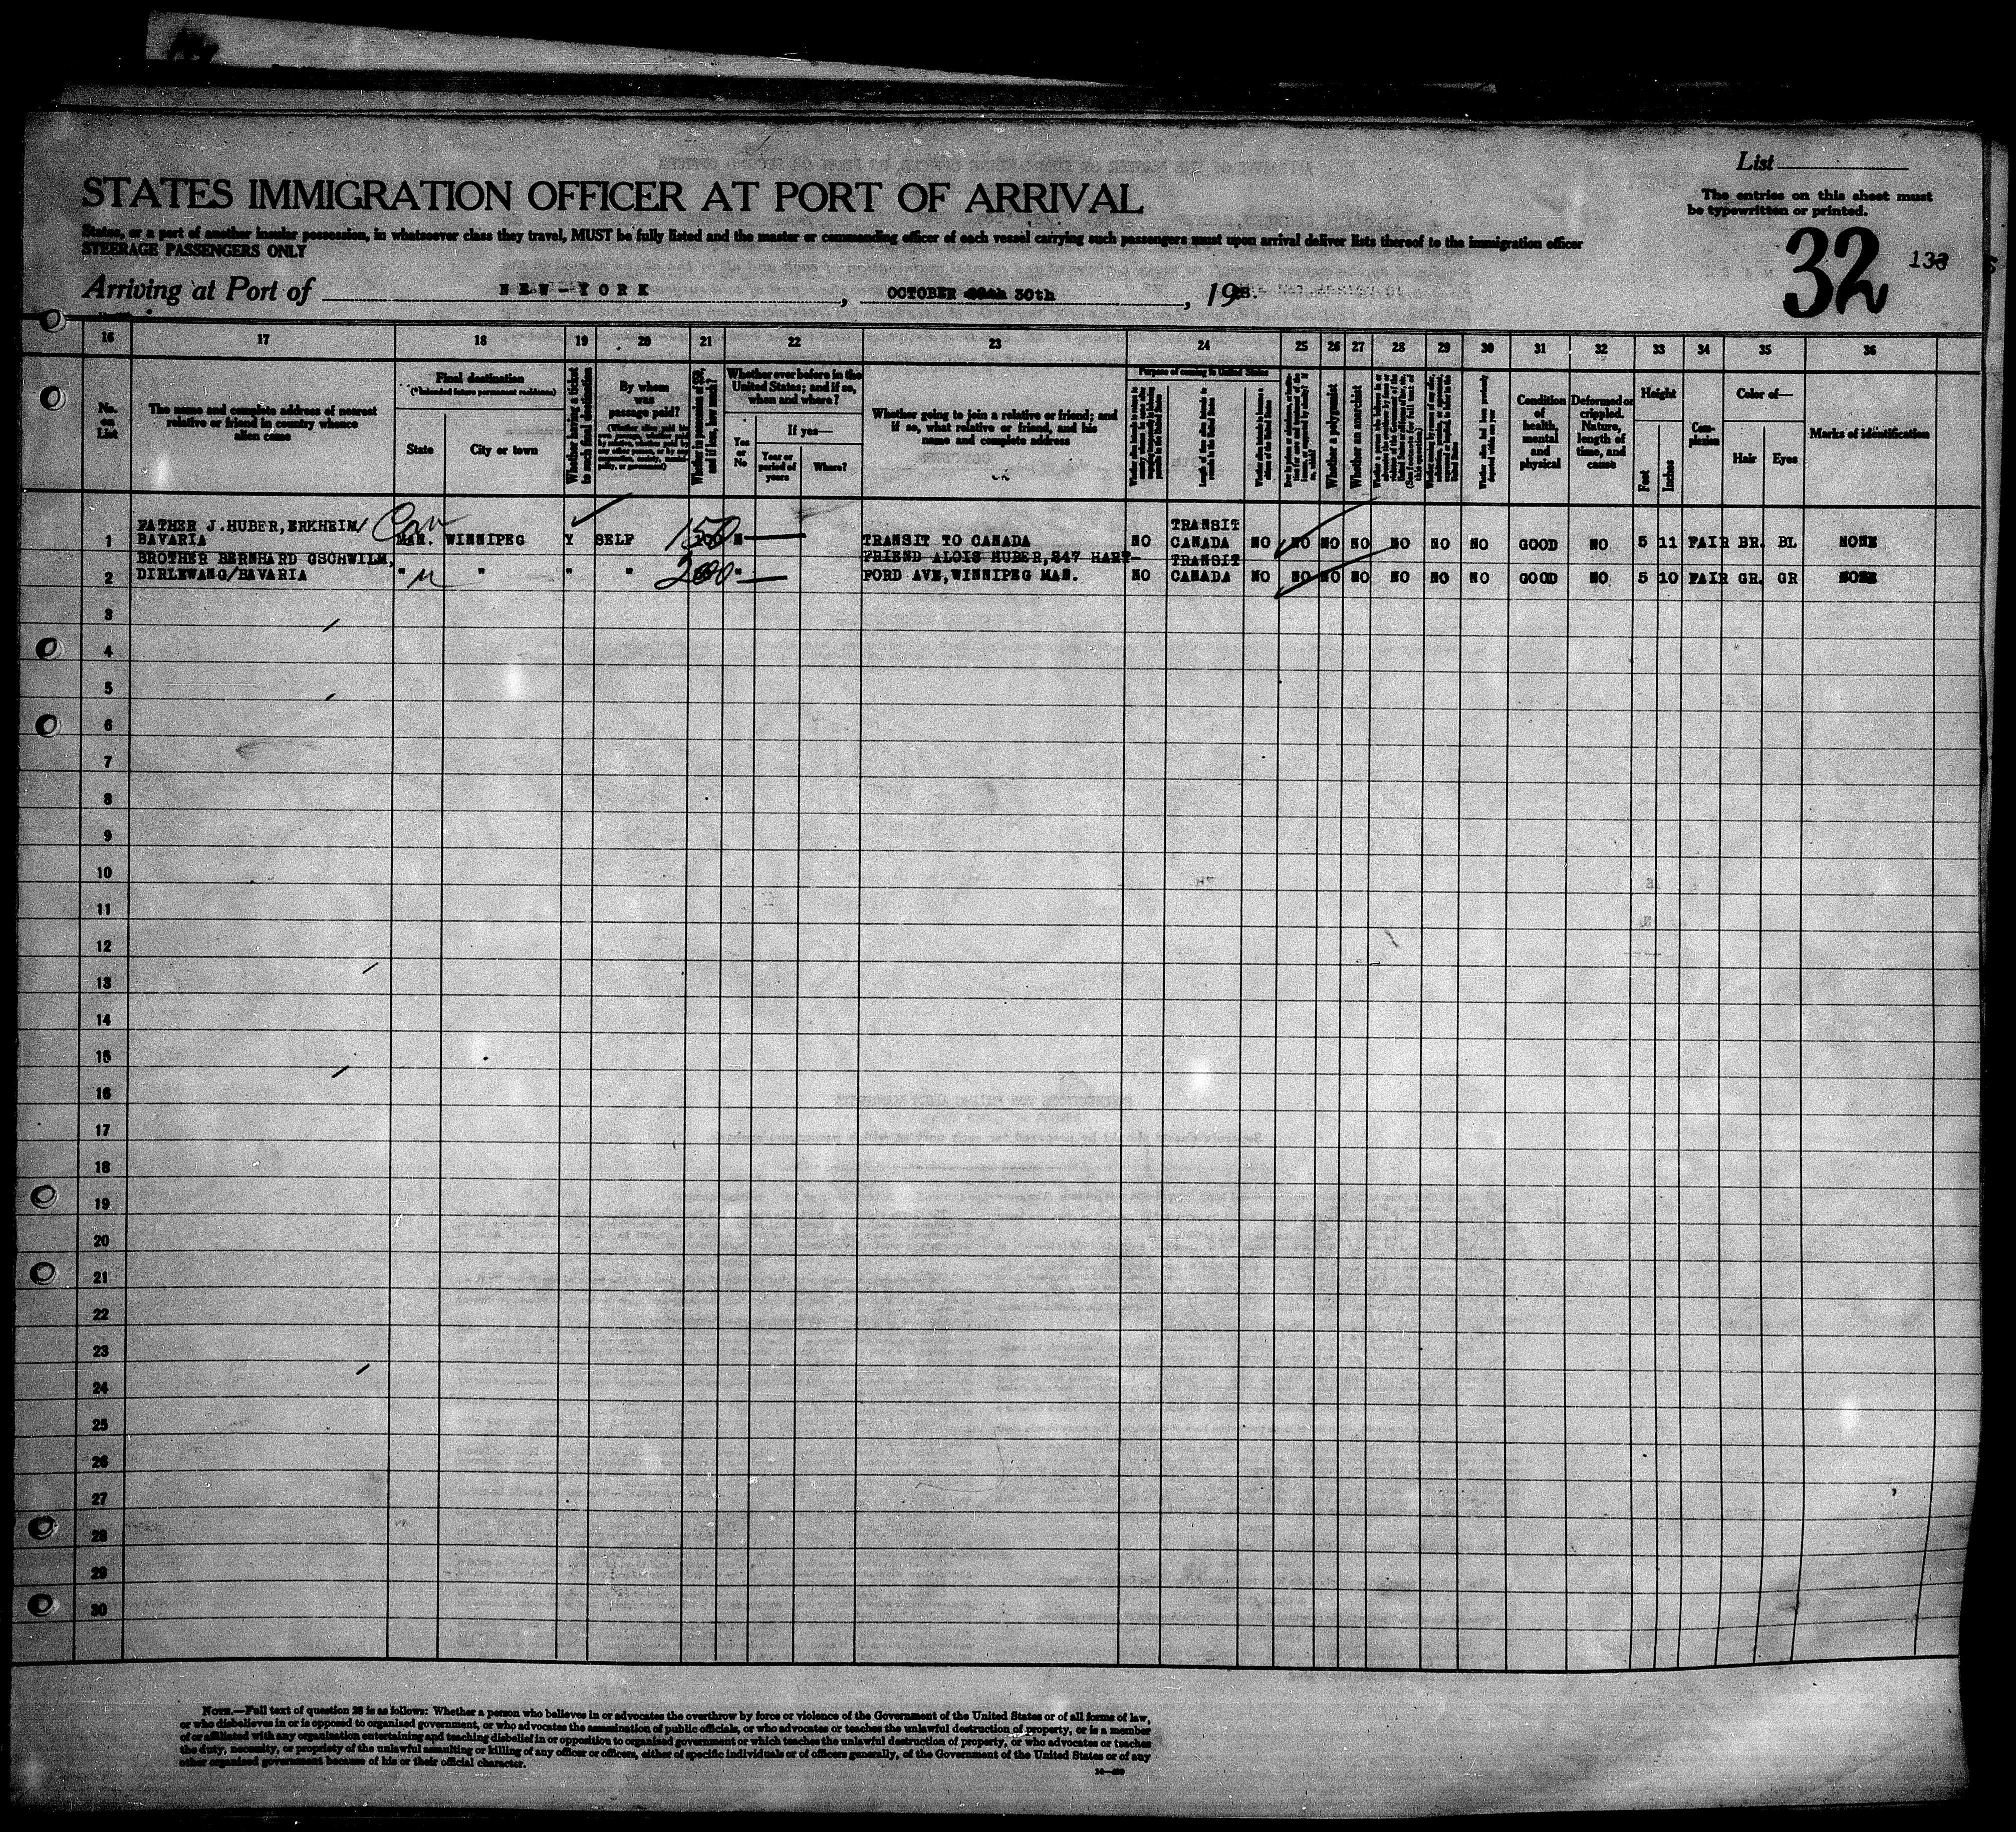 List
STATES IMMIGRATION OFFICER AT PORT OF ARRIVAL
The entries on this sheet must
be typewritten or printed.
States, or a part of another insular possession, in whatsoever class they travel, MUST be fully listed and the master or commanding officer of each vessel carrying such passengers must upon arrival deliver lists thereof to the immigration officer
STEERAGE PASSENGERS ONLY
32 133
Arriving at Port of NEW-YORK, OCTOBER 30th, 19
16 17 18 19 20 21 22 23 24 25 26 27 28 29 30 31 32 33 34 35 36
No.
on
List
The name and complete address of nearest
relative or friend in country whence
alien came
Final destination
(*Intended future permanent residence)
State
City or town
Whether having a ticket
to such final destination
By whom
was
passage paid?
Whether in possession of $50,
and if less, how much?
Whether ever before in the
United States; and if so,
when and where?
Yes
or
No
If yes—
Year or
period of
years
Where?
Whether going to join a relative or friend; and
if so, what relative or friend, and his
name and complete address
Purpose of coming to United States
Whether a polygamist
Whether an anarchist
Condition
of
health,
mental
and
physical
Deformed or
crippled.
Nature,
length of
time, and
cause
Height
Feet
Inches
Com-
plexion
Color of—
Hair
Eyes
Marks of identification
FATHER J.HUBER,ERKHEIM/ Can TRANSIT
1 BAVARIA MAN. WINNIPEG Y SELF 150 N TRANSIT TO CANADA NO CANADA NO NO NO NO NO NO NO GOOD NO 5 11 FAIR BR. BL NONE
BROTHER BERNHARD GSCHWILM, FRIEND ALOIS HUBER,247 HART- TRANSIT
2 DIRLEWANG/BAVARIA " " " " 200 " FORD AVE,WINNIPEG MAN. NO CANADA NO NO NO NO NO NO NO GOOD NO 5 10 FAIR GR. GR NONE
3
4
5
6
7
8
9
10
11
12
13
14
15
16
17
18
19
20
21
22
23
24
25
26
27
28
29
30
NOTE.—Full text of question 28 is as follows: Whether a person who believes in or advocates the overthrow by force or violence of the Government of the United States or of all forms of law,
or who disbelieves in or is opposed to organized government, or who advocates the assassination of public officials, or who advocates or teaches the unlawful destruction of property, or is a member
of or affiliated with any organization entertaining and teaching disbelief in or opposition to organized government or which teaches the unlawful destruction of property, or who advocates or teaches
the duty, necessity, or propriety of the unlawful assaulting or killing of any officer or officers, either of specific individuals or of officers generally, of the Government of the United States or of any
other organized government because of his or their official character.